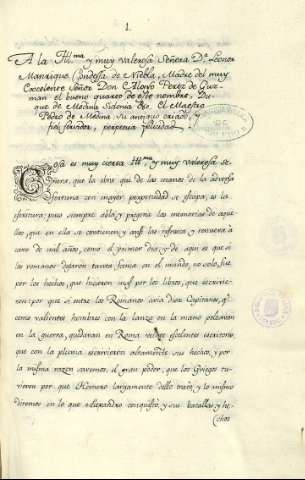 1.
A la Ill.ma y muy valerosa Señora D.a Leonor
Manrique Condessa de Niebla, Madre del muy
Excelente Señor Don Aloyo Perez de Guz-
man el bueno quarto de este nombre, Du-
que de Medina Sidonia &c. El Maestro
Pedro de Medina su antiguo criado, y
fiel servidor, perpetua felicidad.
Cosa es muy cierta Ill.ma y muy valerosa Se-
ñora, que la obra que de las manos de la adversa
fortuna con mayor perpetuidad se escapa, es la
escritura; pues siempre abla, y pregona las memorias de aque-
llos, que en ella se contienen y ansi las refresca y renueva à
cavo de mil años, como el primer dia; y de aqui es que si
los romanos dejaron tanta fama en el mundo, no solo fue
por los hechos, que hicieron mas por los libros, que escurrie-
ron: por que si entre los Romanos avia diez Capitanes, q.e
como valientes hombres con la lanza en la mano peleavan
en la guerra, quedavan en Roma veinte escelentes escritores,
que con la pluma escrivieron altamente sus hechos; y por
la misma razon savemos el gran poder, que los Griegos tu-
vieron por que Homero largamente dello trató, y lo mismo
diremos en lo que Alexandro conquistó, y sus batallas y he-
chos